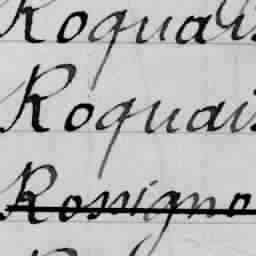 Roquais
Roquais
Rossigno